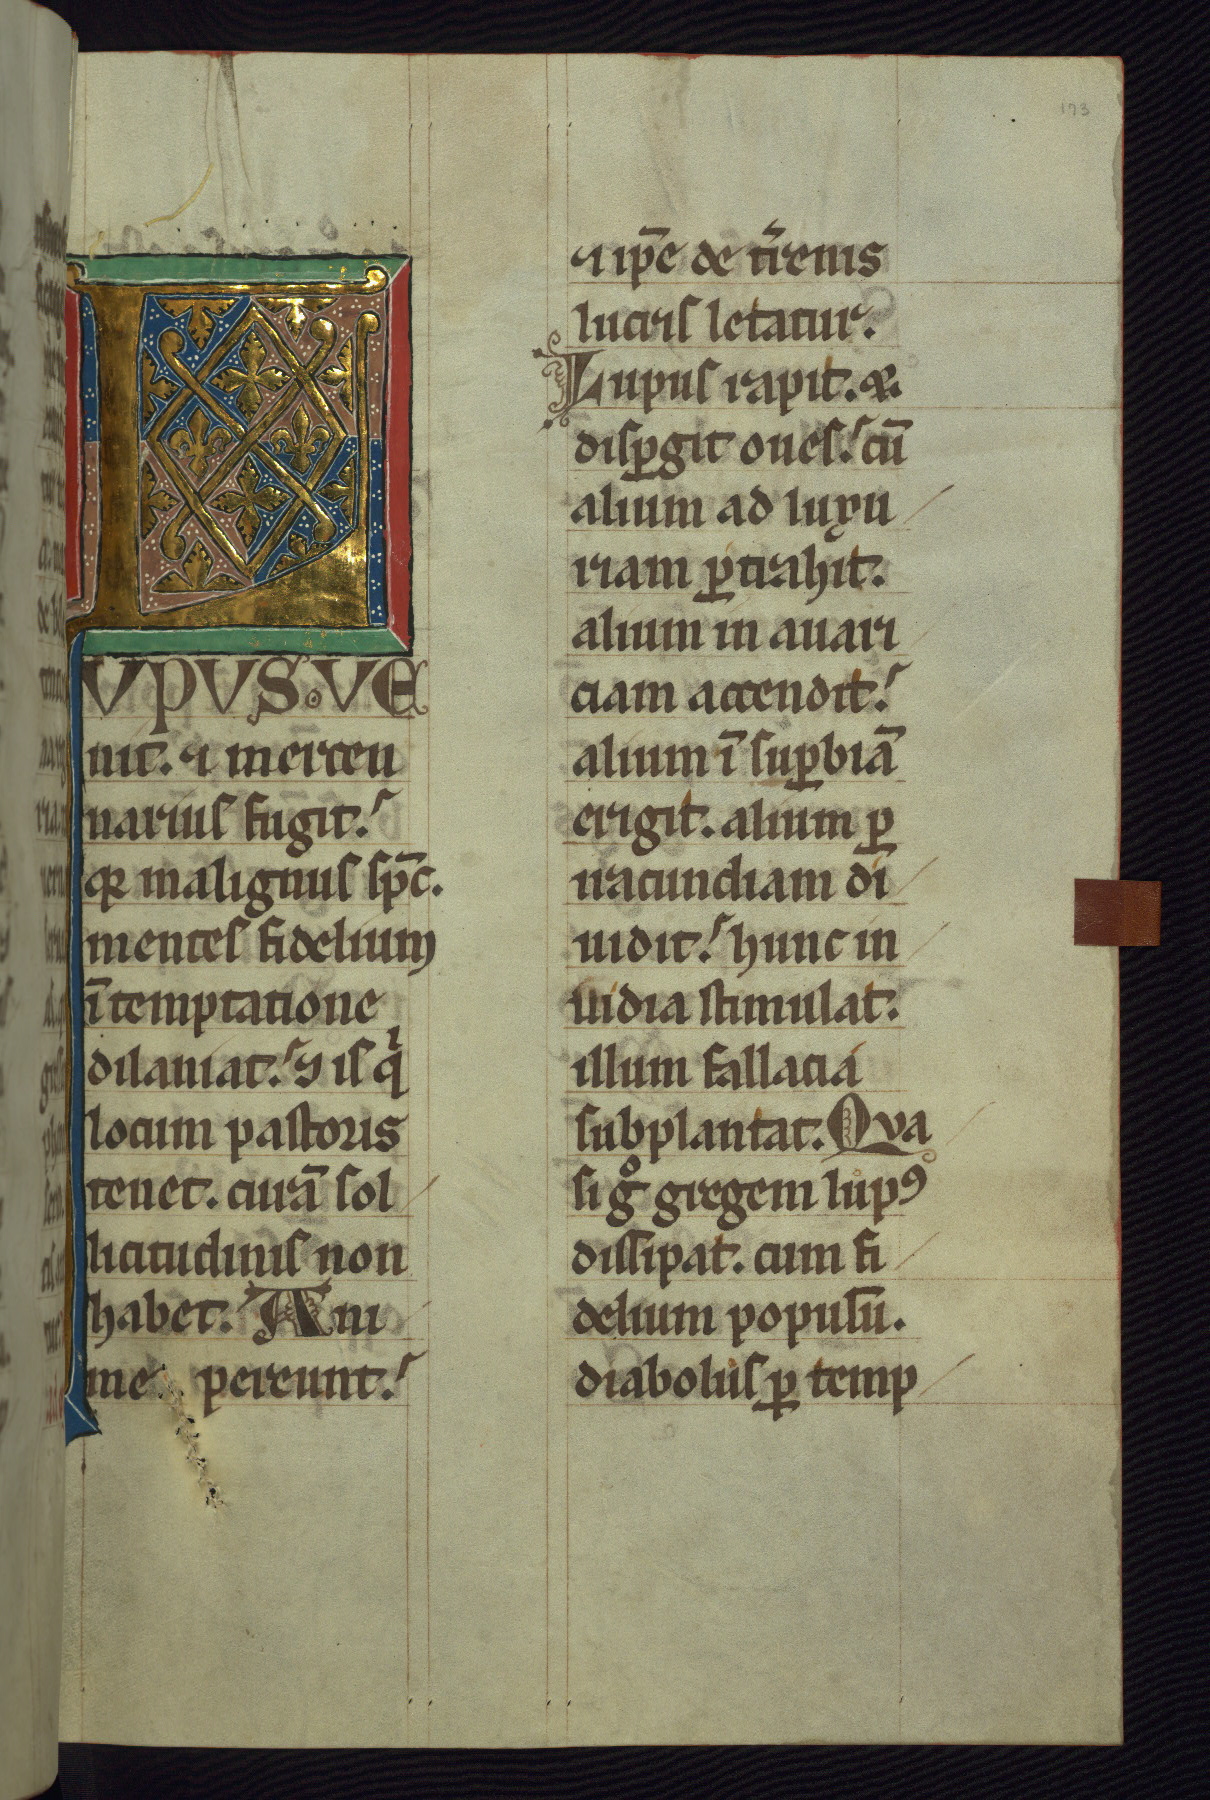 173
LVPVS. VE
nit. ⁊ mercen
narius fugit.
qr malignus sp̄c.
mentes fidelium
ī temptatione
dilaniat. ⁊ is qⁱ
locum pastoris
tenet. curā sol
licitudinis non
habet. Ani
me pereunt.
⁊ ip̄e de t̄renis
lucris letatur.
Lupus rapit. ⁊.
disꝑgit oues. cū
alium ad luxu
riam ꝑtrahit.
alium in auari
ciam accendit.
alium ī suꝑbiā
erigit. alium ꝑ
iracundiam di
uidit. hunc in
uidia stimulat.
illum fallacia
subplantat. Qua
si gͦ gregem lupꝯ
dissipat. cum fi
delium populū.
diabolus ꝑ temp